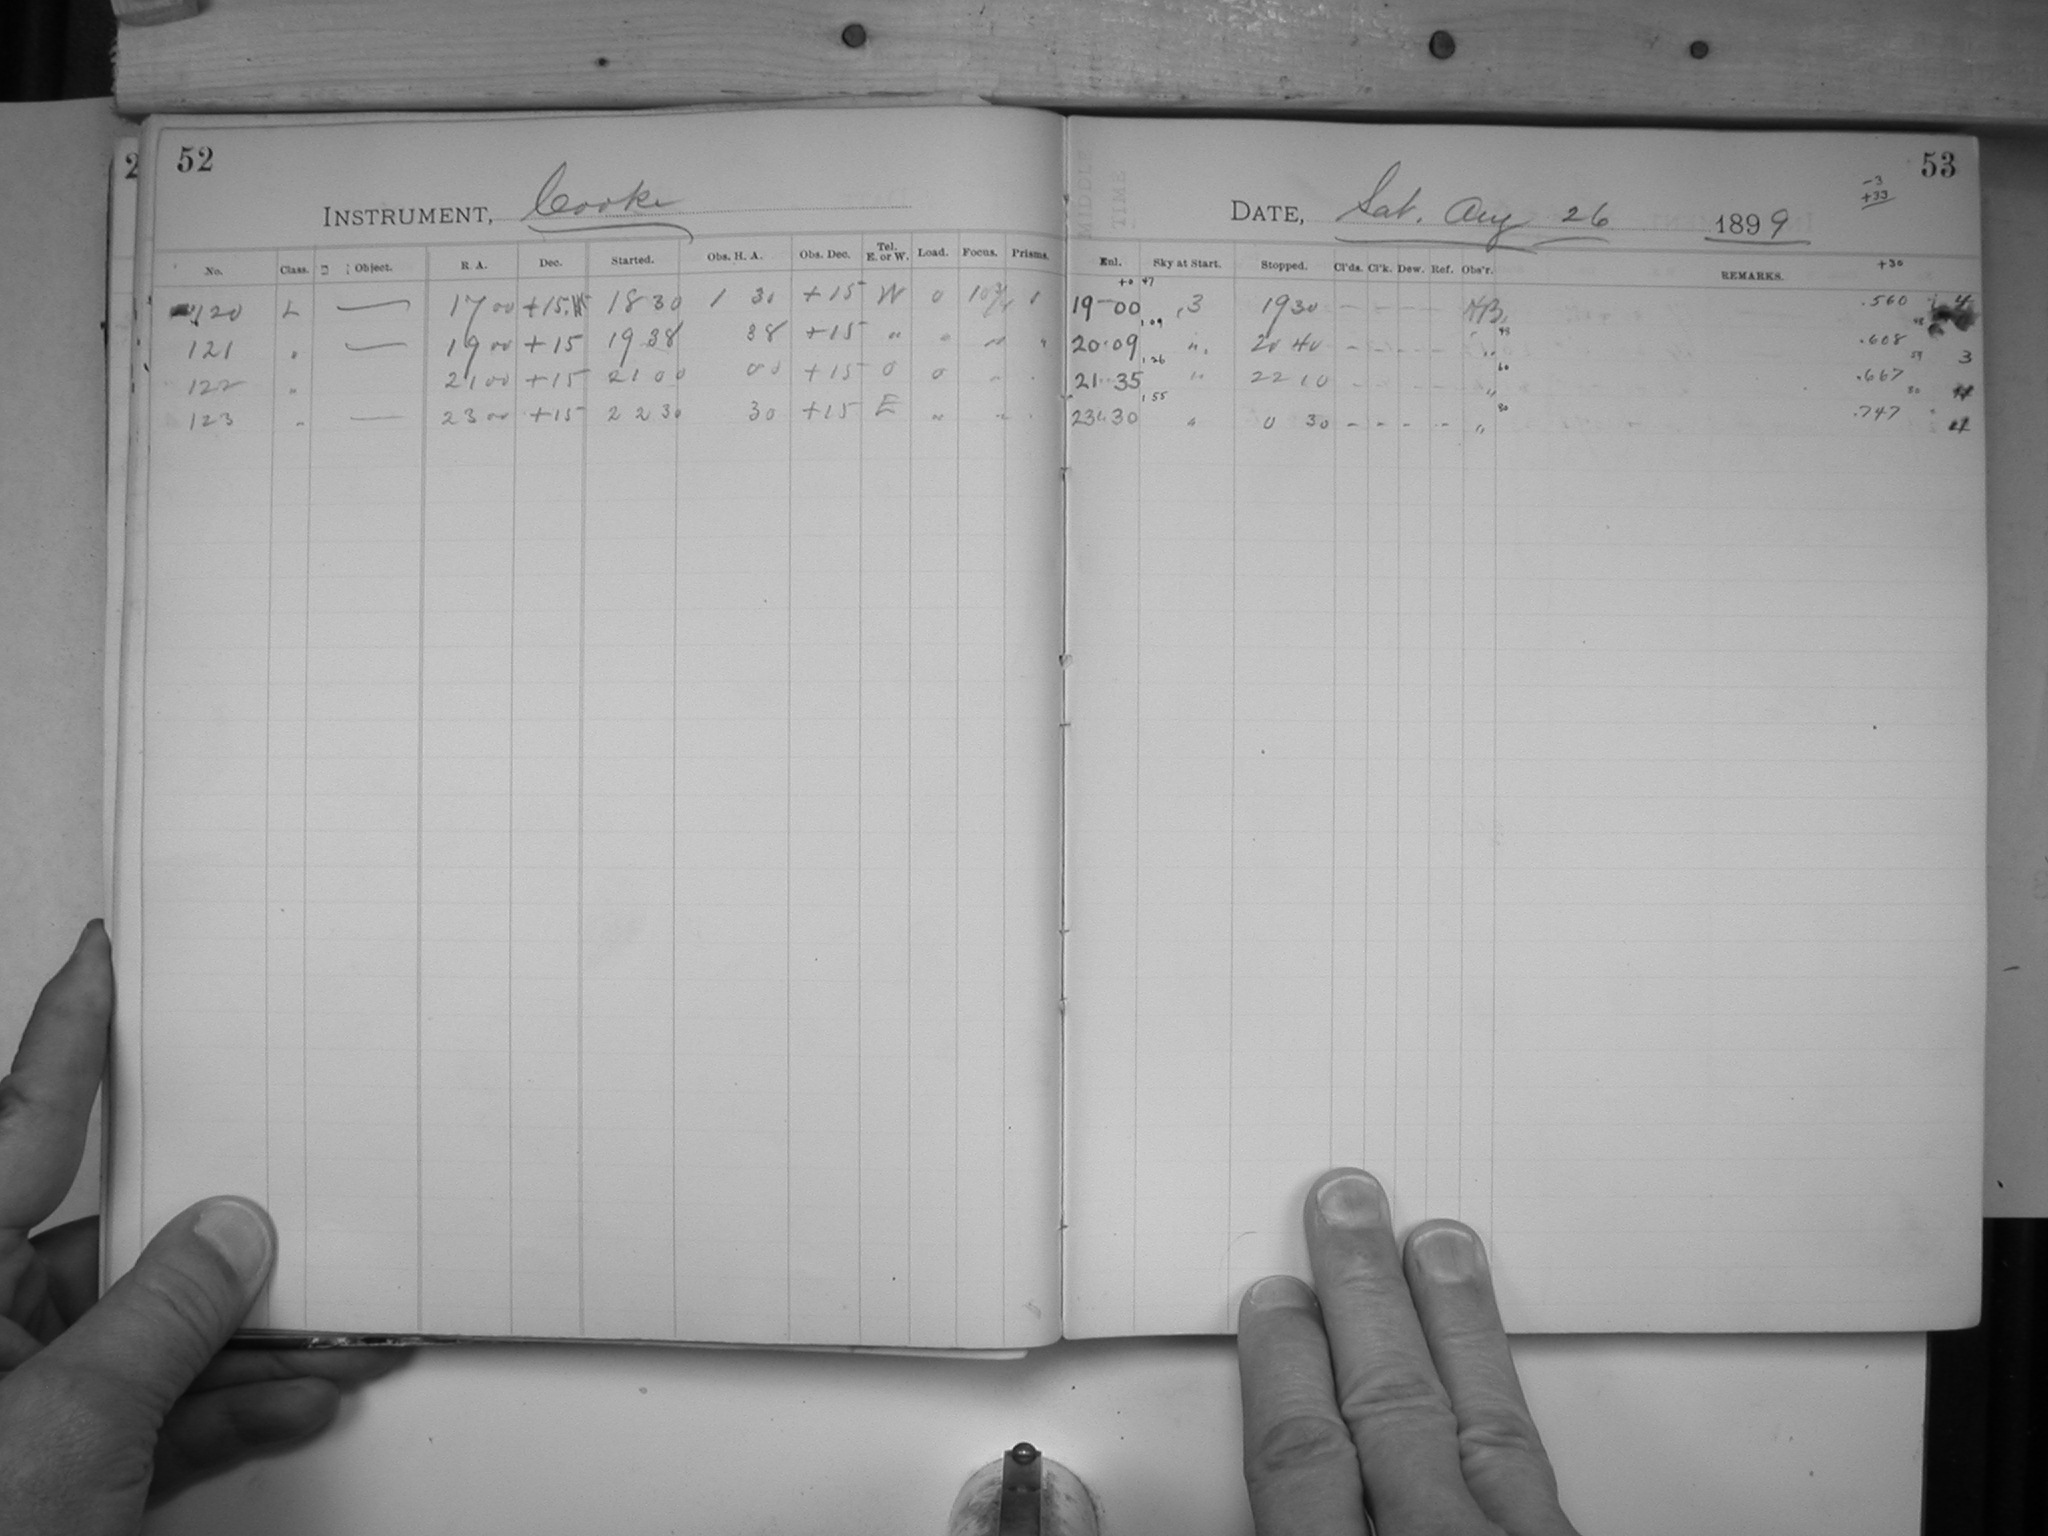 2
52
INSTRUMENT, Cooke
No. Class. Object. R. A. Dec. Started. Obs. H. A. Obs. Dec. Tel. E. or W. Load. Focus. Prisms.
120 L — 17 00 +15 18 30 1 30 +15 W 0 10 3/4 0
121 " — 19 00 +15 19 38 38 +15 " " " "
122 " 21 00 +15 21 00 00 +15 0 0 " "
123 " — 23 00 +15 22 30 30 +15 E " " "
MIDDLE TIME
53
-3
+33
DATE, Sat. Aug 26 1899
Enl. Sky at Start. Stopped. Cl'ds. Cl'k. Dew. Ref. Obs'r. REMARKS.
+30
+0 47
19-00 3 19 30 - - - - .560 4
1 09 48
20.09 " 20 40 - - - - " 48 .608 3
1 26 59
21 35 " 22 10 - - - - " 60 .667 4
1 55 80
23 30 " 0 30 - - - - " 80 .747 4